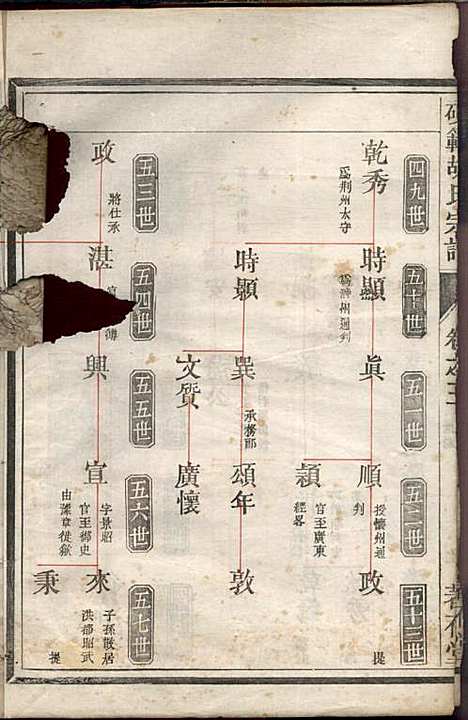 胡氏宗譜
卷之三
四九世
五十世
五一世
五二世
五十三世
乾秀
爲荆州太守
時顯
爲
州通判
眞
順
授懷州通
判
政
提
潁
官至廣東
經畧
時顥
巽
承務郎
頌年
敦
文質
廣懷
五三世
五四世
五五世
五六世
五七世
政
將仕承
湛
興
宣
字景昭
官至御史
由
章徙歙
來
子孫散居
洪都昭武
提
秉